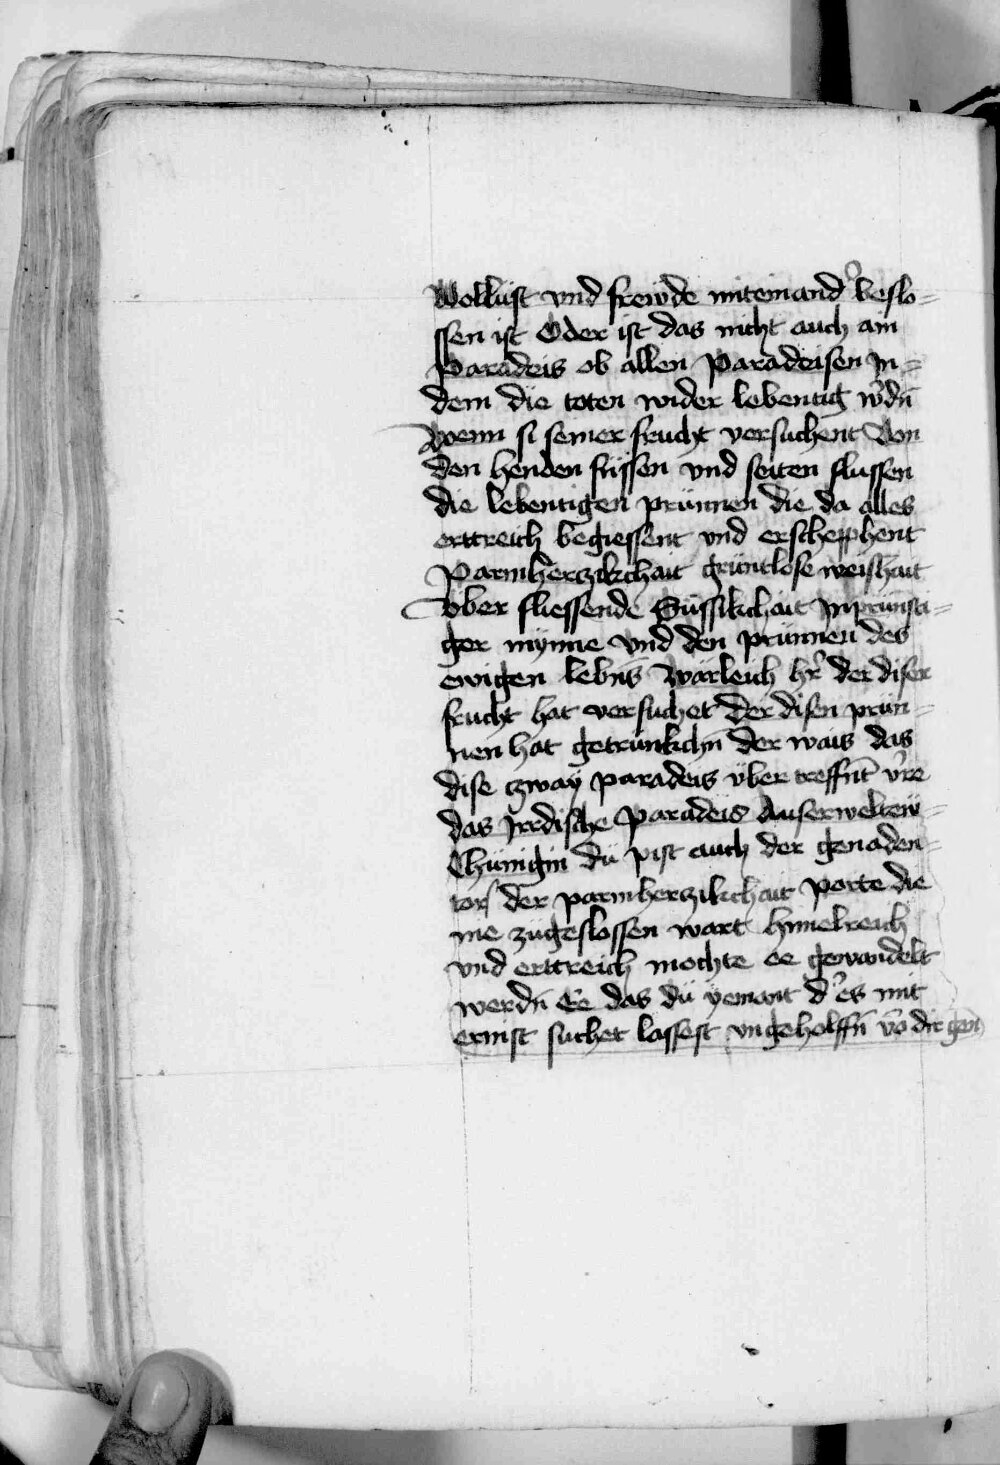 Wollust vnd frewde miteinand͛ beslo=
ssen ist Oder ist das nicht auch ain
Paradeis ob allen Paradeisen in=
dem die toten wider lebentig w͛dn̄
Wenn si seiner frucht versuchent Von
den henden füssen vnd seiten flussen
die lebentigen prünnen die da alles
erttreich begiessent vnd erschepphent
Parmherczikchait grüntlose weishait
Vber fliessende Süssikchait Inprünsti=
ger mynne vnd den prünnen des
ewigen lebn̄s Wärleich h͛r der diser
frucht hat versuchet Der disen prün=
nen hat getrünkchn̄ der wais das
dise czway paradeis über treffn̄t v͛re
das Irrdische Paradeis Auserweltew=
Chünigin dü pist auch der genaden=
tor der parmherczikchait Porte die
nie zügeslossen wart himelreich
vnd erttreich mochte ee gewandelt
werdn̄ Ee das dü yemant d͛ es mit
ernnst suchet lassest vngeholffn̄ vō dir gen